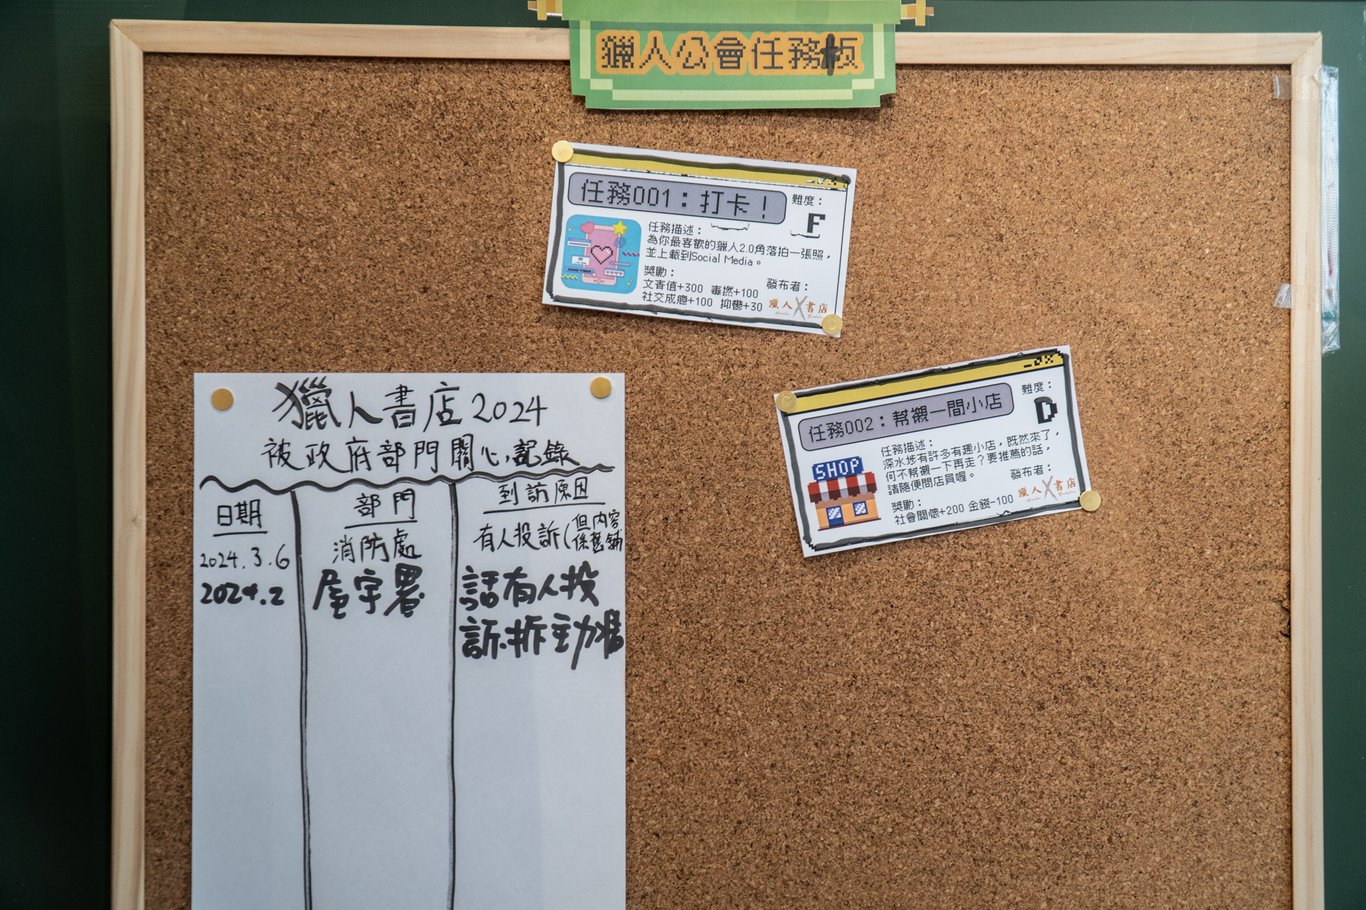 獵人公會任務板
任務001：打卡！
難度：
F
任務描述：
為你最喜歡的獵人2.0角落拍一張照，
並上載到Social Media。
獎勵：
文青值+300 毒撚+100
社交成癮+100 抑鬱+30
發布者：
獵人書店
任務002：幫襯一間小店
難度：
D
SHOP
任務描述：
深水埗有許多有趣小店，既然來了，
何不幫襯一下再走？要推薦的話，
請隨便問店員喔。
獎勵：
社會關懷+200 金錢-100
發布者：
獵人書店
獵人書店2024
被政府部門關心記錄
日期 部門 到訪原因
2024.3.6 消防處 有人投訴(但內容
係舊舖
2024.2 屋宇署 話有人投
訴拆主力牆